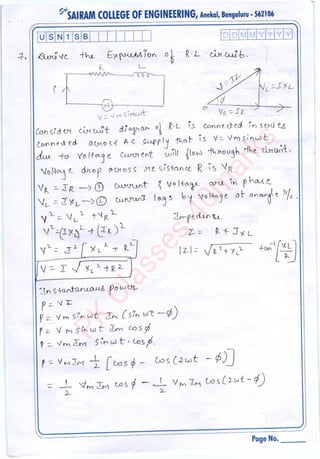 Sri SAIRAM COLLEGE OF ENGINEERING, Anekal, Bengaluru - 562106
U S N 1 S B
D D M M Y Y Y Y
7. Derive the Expression of R-L circuit.
R L
V = Vm sinωt
V = IZ
VL = IXL
VR = IR
Consider circuit diagram of R-L is connected in series
connected across AC supply that is V = Vm sinωt
due to voltage current will flow through the circuit.
Voltage drop across resistance R is VR
VR = IR → ① current & voltage are in phase
VL = IXL → ② current lags by voltage at an angle π/2
V² = VL² + VR²
V² = (IXL)² + (IR)²
V² = I² [XL² + R²]
V = I √XL² + R²
Impedance
Z = R + JXL
|Z| = √R² + XL² tan⁻¹ [XL/R]
Instantaneous power
P = VI
P = Vm sinωt Im (sinωt - ϕ)
P = Vm sinωt Im cosϕ
P = Vm Im sinωt · cosϕ.
P = Vm Im 1/2 [cosϕ - cos(2ωt - ϕ)]
= 1/2 Vm Im cosϕ - 1/2 Vm Im cos(2ωt - ϕ)
Page No.